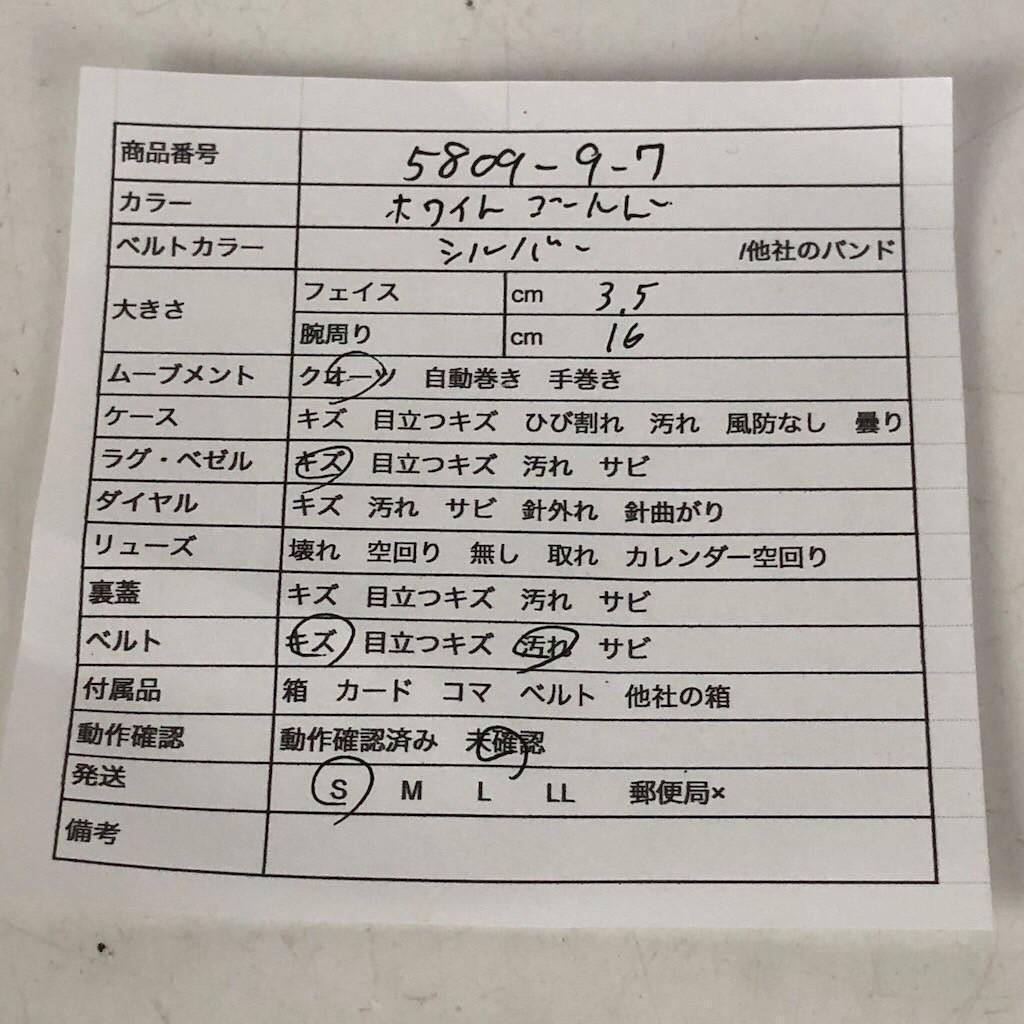 商品番号 5809-9-7
カラー ホワイト ゴールド
ベルトカラー シルバー /他社のバンド
大きさ フェイス cm 3.5
腕周り cm 16
ムーブメント クオーツ 自動巻き 手巻き
ケース キズ 目立つキズ ひび割れ 汚れ 風防なし 曇り
ラグ・ベゼル キズ 目立つキズ 汚れ サビ
ダイヤル キズ 汚れ サビ 針外れ 針曲がり
リューズ 壊れ 空回り 無し 取れ カレンダー空回り
裏蓋 キズ 目立つキズ 汚れ サビ
ベルト キズ 目立つキズ 汚れ サビ
付属品 箱 カード コマ ベルト 他社の箱
動作確認 動作確認済み 未確認
発送 S M L LL 郵便局×
備考